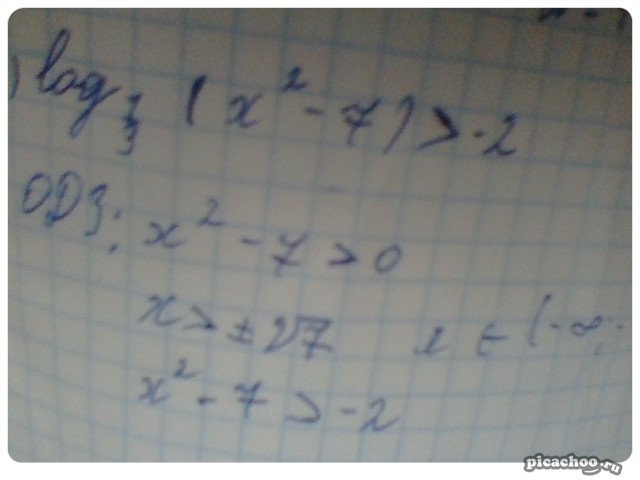 ) log 1/3 (x² - 7) > -2
ОДЗ: x² - 7 > 0
x > ±√7 x ∈ (-∞;
x² - 7 > -2
picachoo.ru